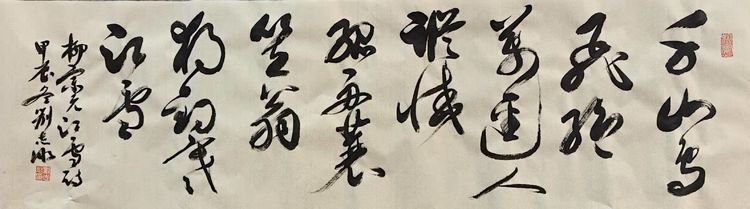 千山鳥
飛絕
萬徑人
蹤滅
孤舟蓑
笠翁
獨釣寒
江雪
柳宗元江雪詩
甲辰冬劉志